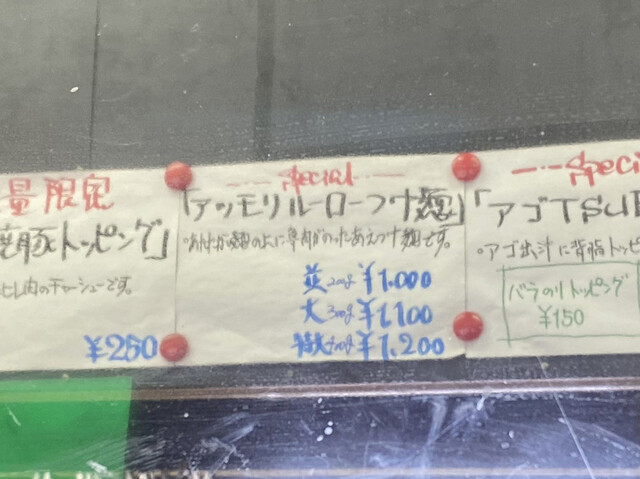 量限定
焼豚トッピング」
ヒレ肉のチャーシューです。
¥250
special
「アツモリルーローつけ麺」
並200g ¥1.000
大300g ¥1,100
特大400g ¥1,200
speci
「アゴTSU
・アゴ出汁に背脂トッピ
バラのりトッピング
¥150